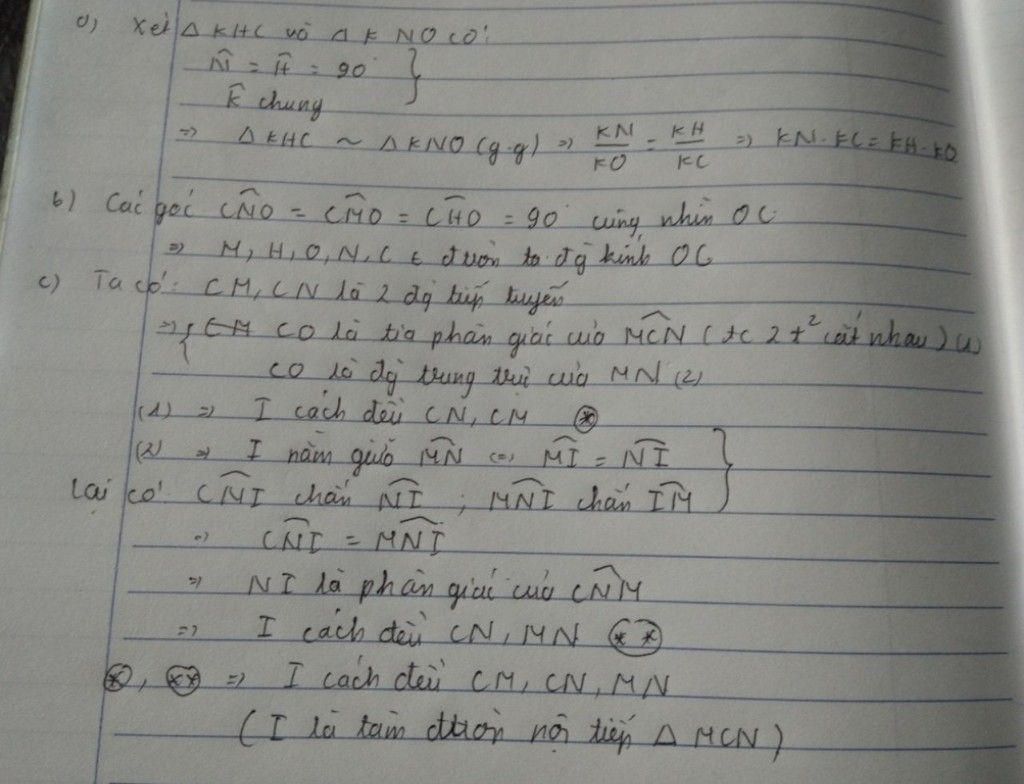 a) Xét Δ KHC và Δ KNO có:
N̂ = Ĥ = 90°
K̂ chung
=> Δ KHC ~ Δ KNO (g.g) => KN/KO = KH/KC => KN.KC = KH.KO
b) Các góc CNO = CMO = CHO = 90° cùng nhìn OC
=> M, H, O, N, C ∈ đườn to đg kính OC
c) Ta có: CM, CN là 2 đg tiếp tuyến
=> { CO là tia phân giác của MCN (tc 2 t² cắt nhau) (1)
CO là đg trung trự của MN (2)
(1) => I cách đều CN, CM (*)
(2) => I nằm giữa MN <=> MI = NI
Lại có: CNI chắn NI ; MNI chắn IM
=> CNI = MNI
=> NI là phân giác của CNM
=> I cách đều CN, MN (**)
(*), (**) => I cách đều CM, CN, MN
(I là tâm đườn nội tiếp Δ MCN)